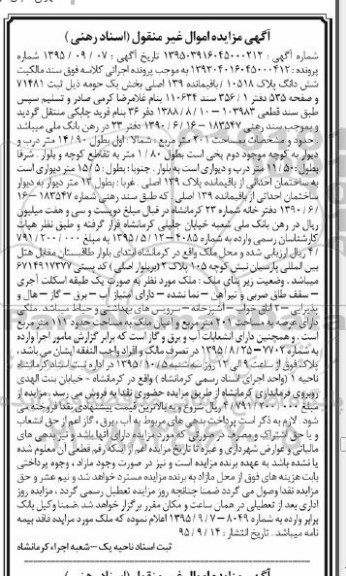 آگهی مزایده اموال غیر منقول (اسناد رهنی)
شماره آگهی : ۱۳۹۵۰۳۹۱۶۰۴۵۰۰۰۲۱۲ تاریخ آگهی : ۰۷ / ۰۹ / ۱۳۹۵ شماره
پرونده: ۱۳۹۳۰۴۰۱۶۰۴۵۰۰۰۴۱۲ به موجب پرونده اجرائی کلاسه فوق سند مالکیت
شش دانگ پلاک ۱۰۵۱۸ / باقیمانده ۱۳۹ اصلی بخش یک حومه ذیل ثبت ۷۱۴۸۱
و صفحه ۵۳۵ دفتر ۱ / ۳۵۶ سند ۱۱۰۶۳۴ بنام غلامرضا کرمی صادر و تسلیم سپس
طبق سند قطعی ۱۰۳۹۸۳ – ۱۳۸۸/۸/۱۰ دفتر ۳۶ بنام فرید چابکی منتقل گردید
و بموجب سند رهنی ۱۸۳۵۴۷ – ۱۳۹۰/۶/۱۶ دفتر ۲۳ در رهن بانک ملی میباشد
حدود و مشخصات به مساحت ۲۰۱ متر مربع : شمالا: اول بطول ۱۴/۹۰ متر درب و
دیوار به کوچه موجود دوم پخی است بطول ۱/۸۰ متر به تقاطع کوچه و بلوار . شرقا
بطول: ۱۱/۵۰ متر درب و دیواری است به بلوار . جنوبا : بطول : ۱۵/۵۰ متر دیواری است
به ساختمان احداثی از باقیمانده پلاک ۱۳۹ اصلی . غربا : بطول ۱۳ متر دیوار به دیوار
ساختمان احداثی از باقیمانده ۱۳۹ اصلی. که طبق سند رهنی شماره ۱۸۳۵۴۷ – ۱۶
/ ۶ / ۱۳۹۰ دفتر خانه شماره ۲۳ کرمانشاه در قبال مبلغ دویست و سی و هفت میلیون
ریال در رهن بانک ملی شعبه خیابان جلیلی کرمانشاه قرار گرفته و طبق نظر هیات
کارشناسان رسمی وارده به شماره ۴۰۸۵ – ۱۳۹۵/۵/۱۲ به مبلغ ۰۰۰ / ۲۰۰ / ۷۹۱
/ ۴ ریال ارزیابی شده و محل ملک واقع در کرمانشاه ابتدای بلوار طاقبستان مقابل هتل
بین المللی پارسیان نبش کوچه ۱۰۵ پلاک ۲ (بربلوار اصلی) کد پستی ۶۷۱۴۹۱۷۳۷۷
میباشد . وضعیت زیر بنای ملک : ملک مورد نظر به صورت یک طبقه اسکلت آجری
– سقف طاق ضربی و تیرآهن – نما نشده – دارای امتیاز آب – برق – گاز – هال و
پذیرایی – ۲ اتاق خواب – آشپزخانه – سرویس های بهداشتی و حیاط میباشد . ملک
دارای عرصه به مساحت ۲۰۱ متر مربع و اعیان ملک به مساحت حدود ۱۱۱ متر مربع
است . و همچنین دارای انشعابات آب و برق و گاز است که برابر گزارش مامور اجرا وارده
به شماره ۷۷۰۲ – ۱۳۹۵/۸/۲۵ در تصرف مالک و افراد واجب النفقه ایشان می باشد .
پلاک فوق از ساعت ۹ الی ۱۲ روز سه شنبه ۱۳۹۵/۱۰/۵ در اداره ثبت اسناد کرمانشاه
ناحیه ۱ (واحد اجرای اسناد رسمی کرمانشاه) واقع در کرمانشاه – خیابان بنت الهدی
روبروی فرمانداری کرمانشاه از طریق مزایده حضوری نقدا به فروش می رسد . مزایده از
مبلغ ۰۰۰ / ۲۰۰ / ۷۹۱ / ۴ ریال شروع و به بالاترین قیمت پیشنهادی نقدا فروخته می
شود. لازم به ذکر است پرداخت بدهی های مربوط به آب، برق ، گاز اعم از حق انشعاب
و یا حق اشتراک و مصرف در صورتی که مورد مزایده دارای آنها باشد و نیز بدهی های
مالیاتی و عوارض شهرداری و غیره تا تاریخ مزایده اعم از اینکه رقم قطعی آن معلوم شده
یا نشده باشد به عهده برنده مزایده است و نیز در صورت وجود مازاد ، وجوه پرداختی
بابت هزینه های فوق از محل مازاد به برنده مزایده مسترد خواهد شد و نیم عشر و حق
مزایده نقدا وصول می گردد ضمنا چنانچه روز مزایده تعطیل رسمی گردد . مزایده روز
اداری بعد از تعطیلی در همان ساعت و مکان مقرر برگزار خواهد شد .ضمنا وکیل بانک
برابر وارده به شماره ۸۰۴۹ – ۱۳۹۵/۹/۷ اعلام نموده که ملک مورد مزایده فاقد بیمه
نامه میباشد . تاریخ انتشار : ۹۵/۹/۱۴
ثبت اسناد ناحیه یک – شعبه اجراء کرمانشاه